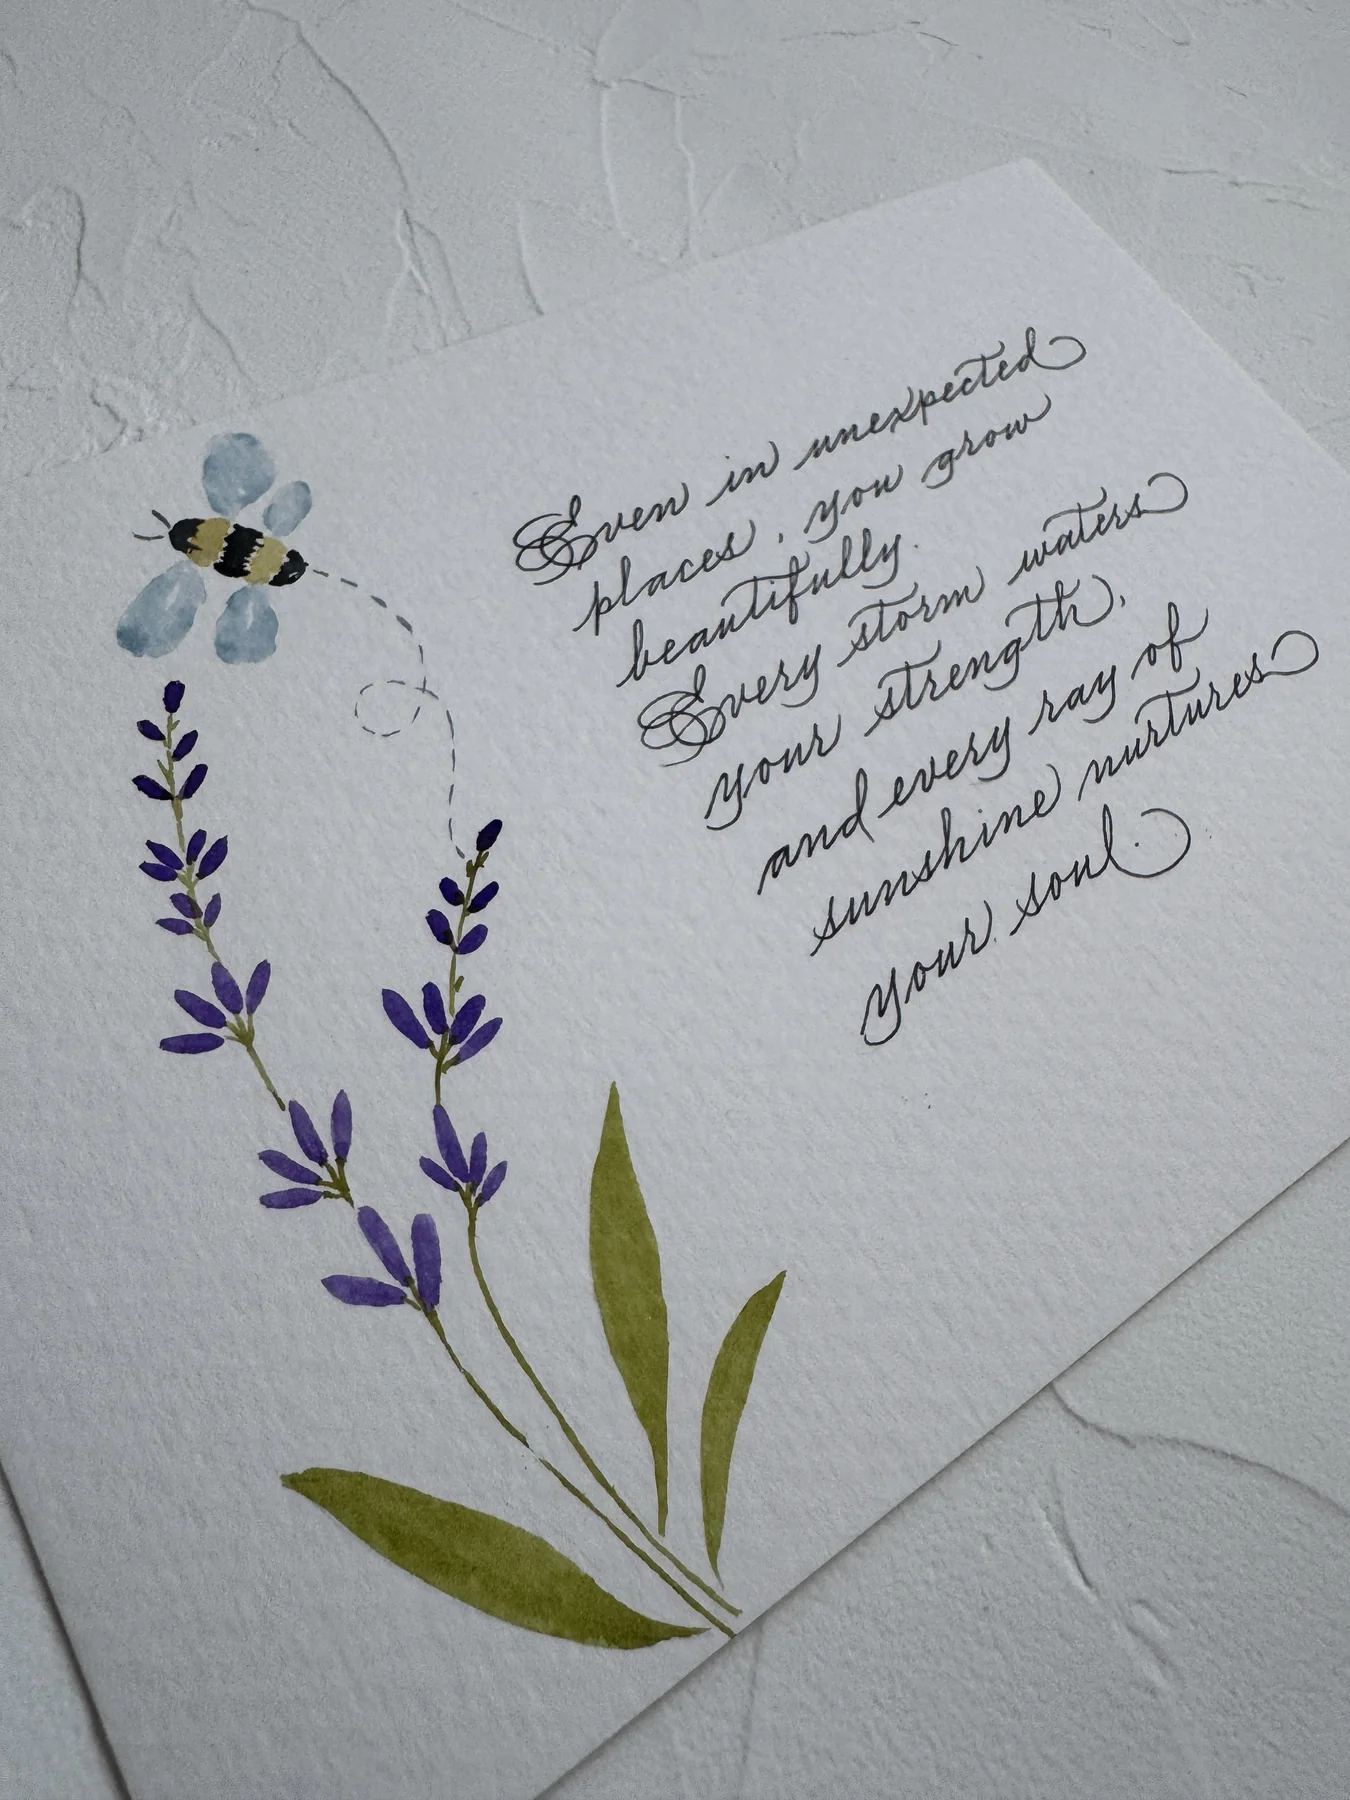 Even in unexpected
places, you grow
beautifully.
Every storm waters
your strength,
and every ray of
sunshine nurtures
your soul.